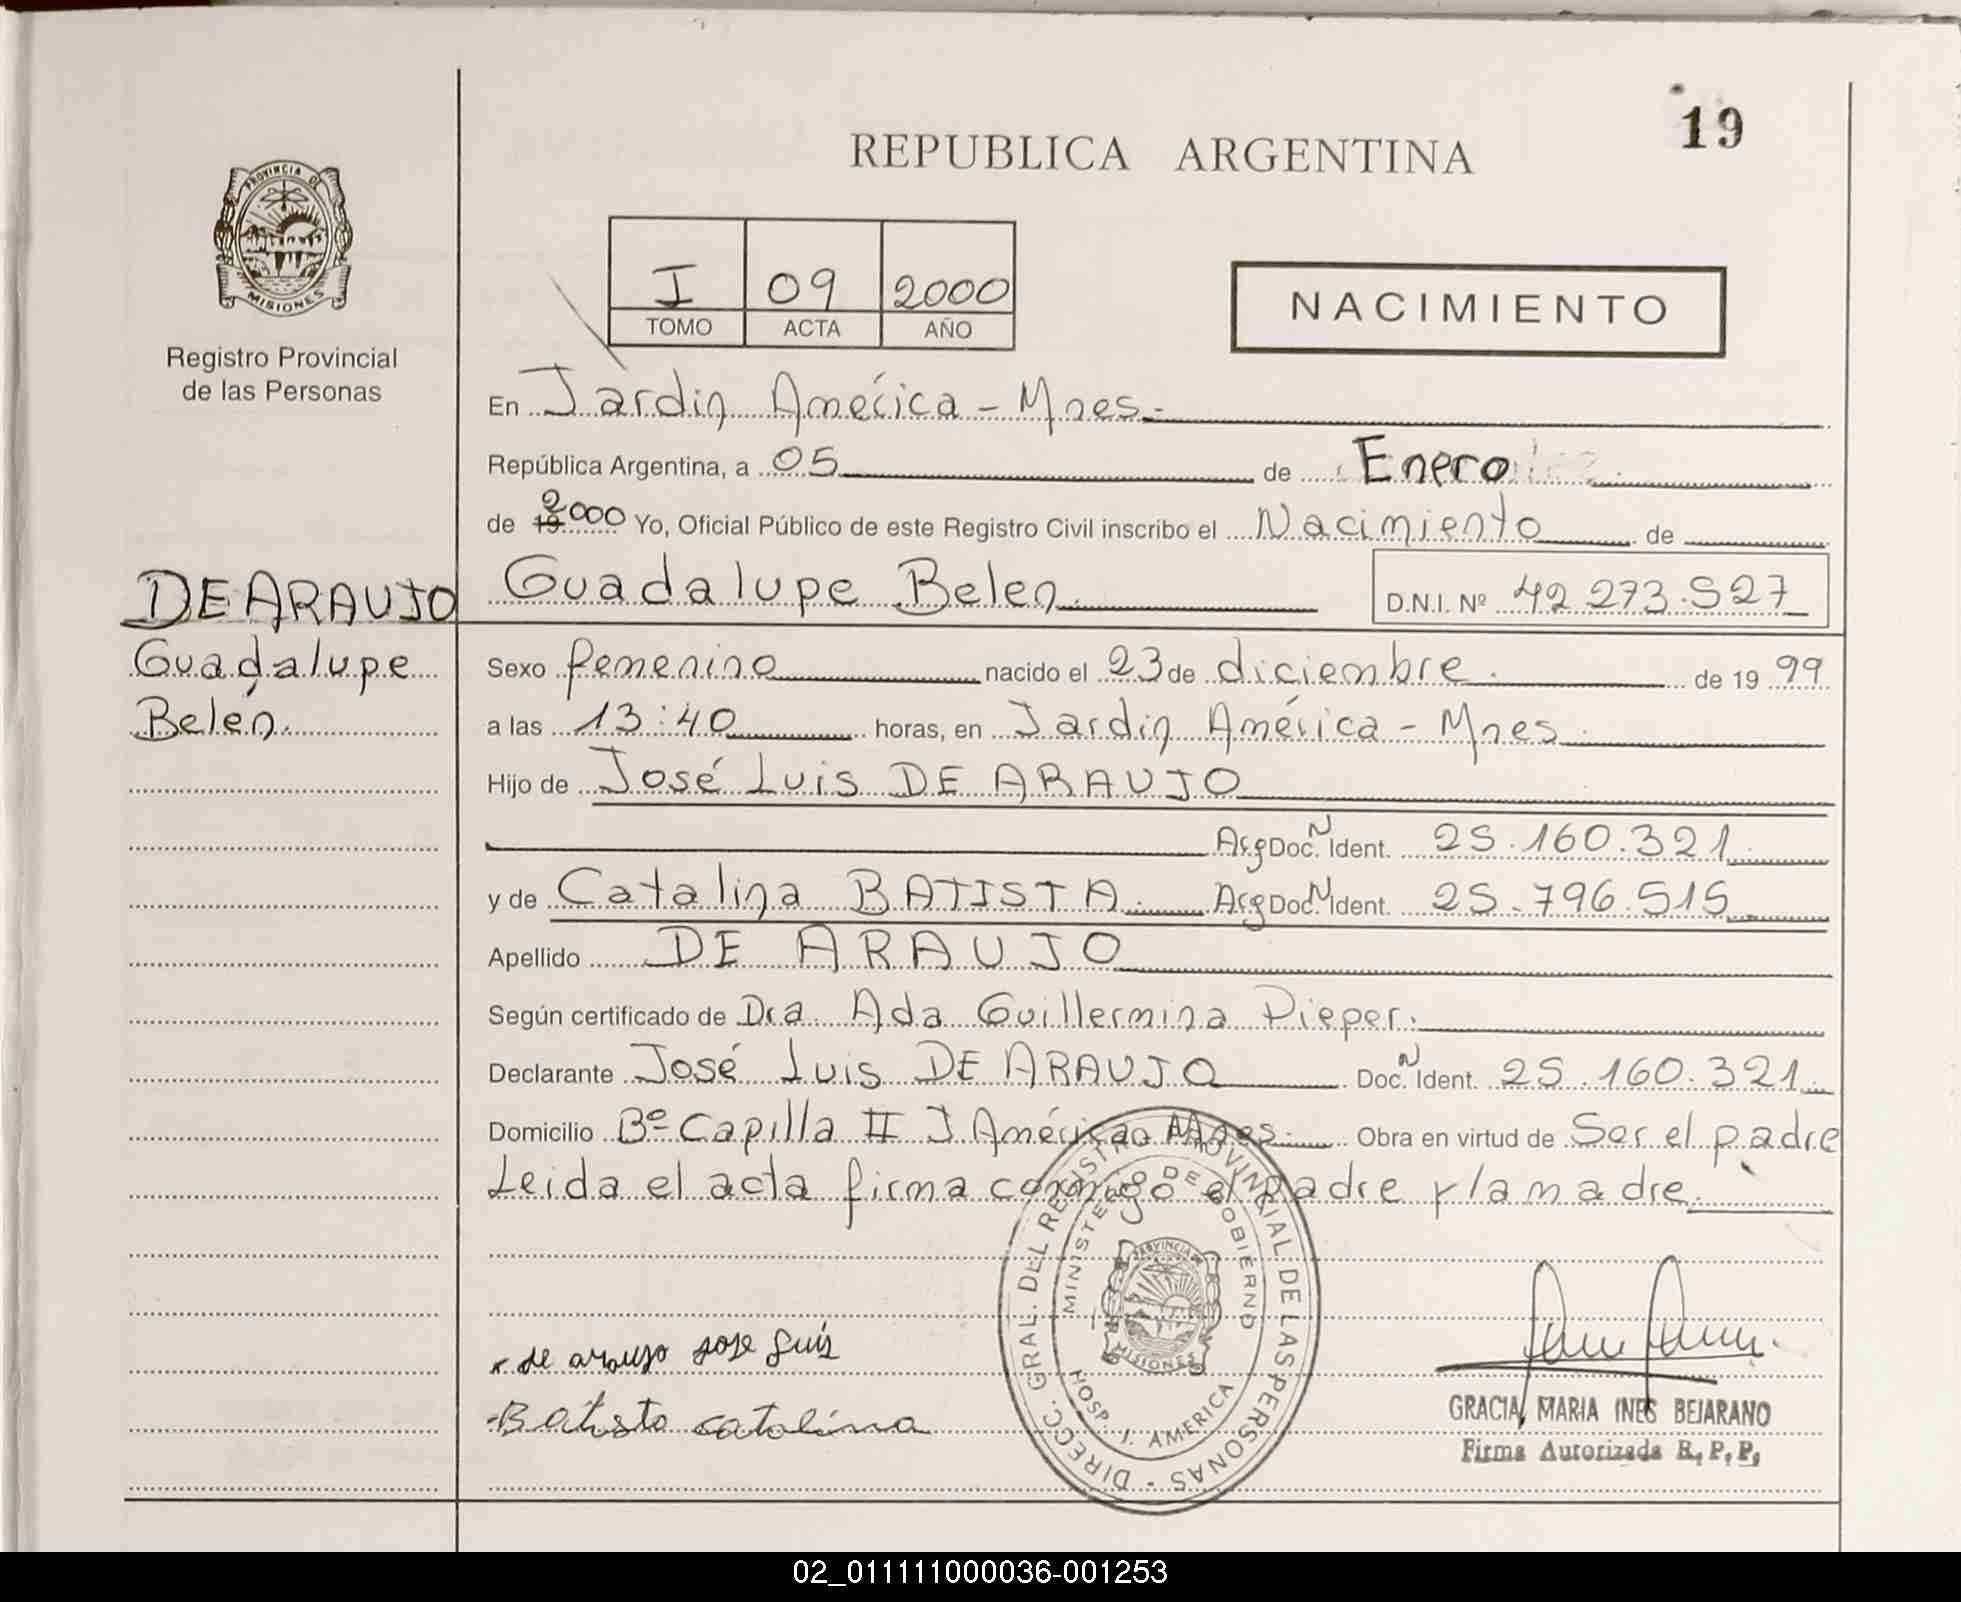 19
REPUBLICA ARGENTINA
PROVINCIA DE
MISIONES
Registro Provincial
de las Personas
I 09 2000
TOMO ACTA AÑO
NACIMIENTO
En Jardin América - Mnes.
República Argentina, a 05 de Enero
de 19 2000 Yo, Oficial Público de este Registro Civil inscribo el Nacimiento de
Guadalupe Belen D.N.I. Nº 42 273.527
DE ARAUJO
Guadalupe
Belén.
Sexo femenino nacido el 23 de diciembre. de 19 99
a las 13:40 horas, en Jardin América - Mnes.
Hijo de José Luis DE ARAUJO
Arg Doc. N Ident. 25.160.321
y de Catalina BATISTA. Arg Doc. N Ident. 25.796.515
Apellido DE ARAUJO
Según certificado de Dra. Ada Guillermina Pieper.
Declarante José Luis DE ARAUJO Doc. N Ident. 25.160.321
Domicilio Bº Capilla II J. América Mnes. Obra en virtud de Ser el padre
Leida el acta firma conmigo el padre y la madre.
DIRECC. GRAL. DEL REGISTRO PROVINCIAL DE LAS PERSONAS -
MINISTERIO DE GOBIERNO
PROVINCIA DE
MISIONES
HOSP. J. AMERICA
de araujo jose luis
Batista catalina
GRACIA MARIA INES BEJARANO
Firma Autorizada R. P. P.
02_011111000036-001253